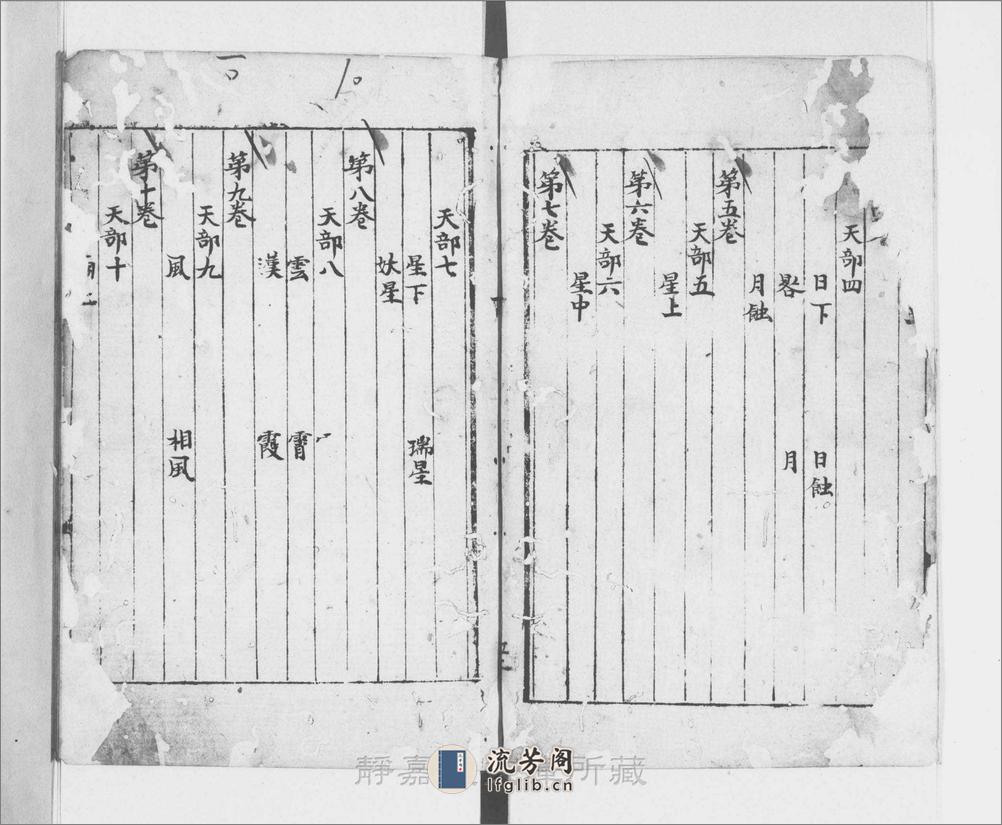 天部四
日下 日蝕
晷 月
月蝕
第五卷
天部五
星上
第六卷
天部六
星中
第七卷
天部七
星下 瑞星
妖星
第八卷
天部八
雲 霄
漢 霞
第九卷
天部九
風 相風
第十卷
天部十
靜嘉 所藏
流芳阁
lfglib.cn